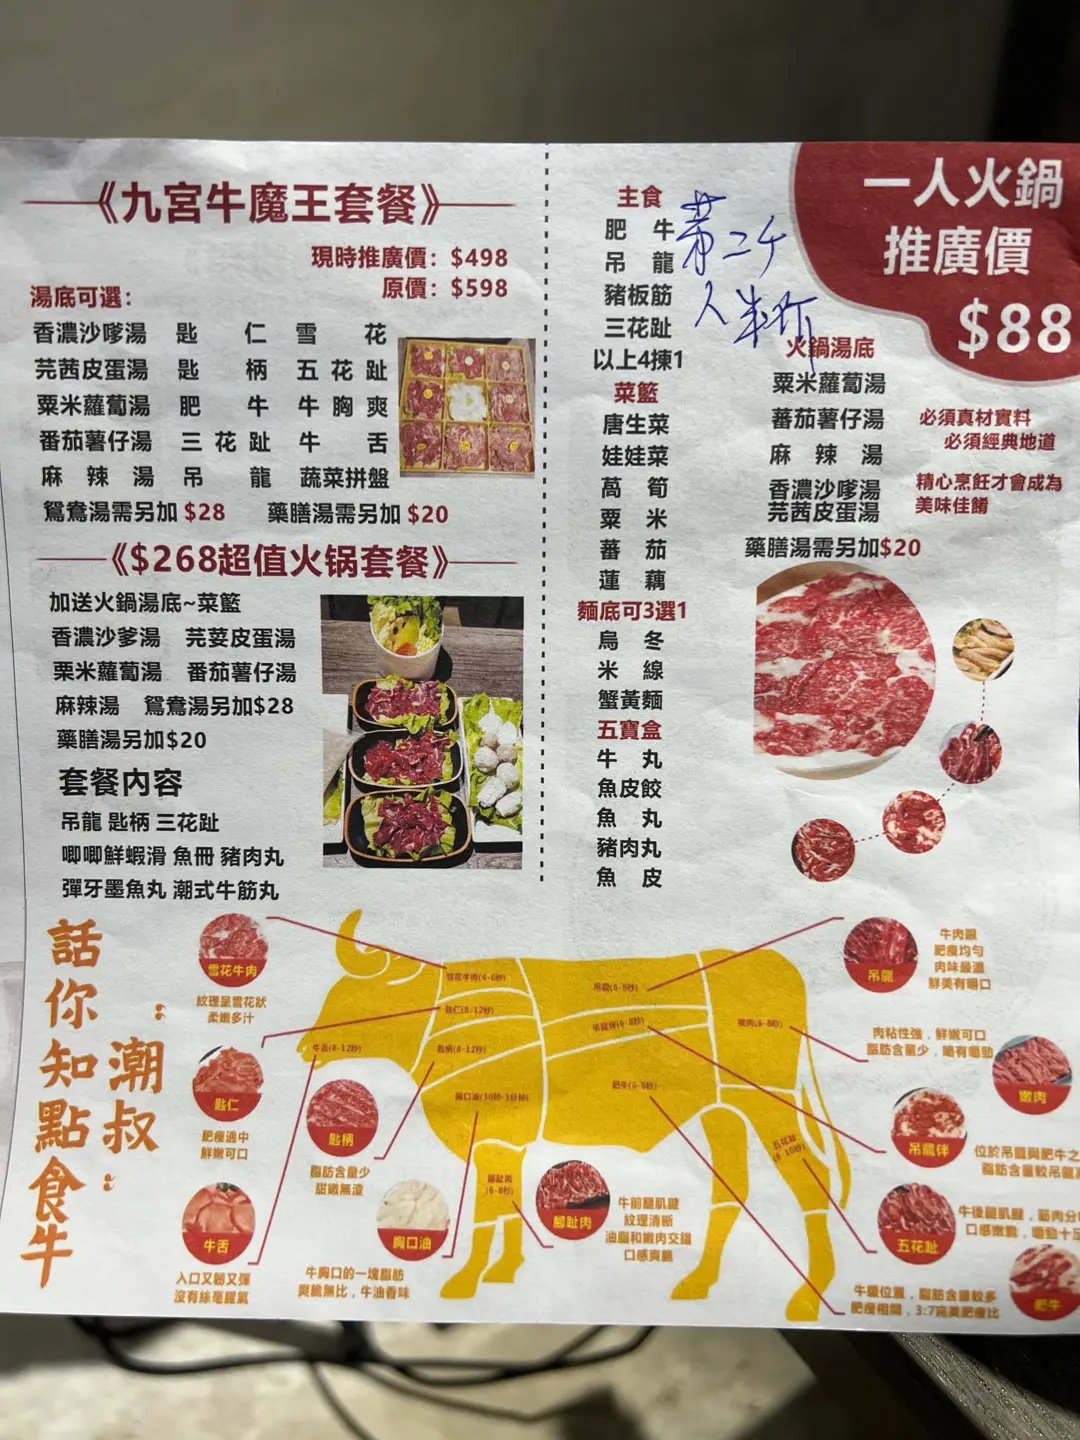 《九宮牛魔王套餐》
現時推廣價：$498
原價：$598
湯底可選：
香濃沙嗲湯 匙仁 雪花
芫茜皮蛋湯 匙柄 五花趾
粟米蘿蔔湯 肥牛 牛胸爽
番茄薯仔湯 三花趾 牛舌
麻辣湯 吊龍 蔬菜拼盤
鴛鴦湯需另加 $28 藥膳湯需另加 $20
《$268超值火锅套餐》
加送火鍋湯底~菜籃
香濃沙爹湯 芫荽皮蛋湯
栗米蘿蔔湯 番茄薯仔湯
麻辣湯 鴛鴦湯另加$28
藥膳湯另加$20
套餐內容
吊龍 匙柄 三花趾
唧唧鮮蝦滑 魚冊 豬肉丸
彈牙墨魚丸 潮式牛筋丸
主食
肥牛
吊龍
豬板筋
三花趾
以上4揀1
菜籃
唐生菜
娃娃菜
萵筍
粟米
蕃茄
蓮藕
麵底可3選1
烏冬
米線
蟹黃麵
五寶盒
牛丸
魚皮餃
魚丸
豬肉丸
魚皮
第二个
人半折
一人火鍋
推廣價
$88
火鍋湯底
粟米蘿蔔湯
蕃茄薯仔湯
麻辣湯
香濃沙嗲湯
芫茜皮蛋湯
藥膳湯需另加$20
必須真材實料
必須經典地道
精心烹飪才會成為
美味佳餚
潮叔：
話你知點食牛
雪花牛肉
紋理呈雪花狀
柔嫩多汁
匙仁
肥瘦適中
鮮嫩可口
牛舌
入口又韌又彈
沒有絲毫腥氣
匙柄
脂肪含量少
甜嫩無渣
胸口油
牛胸口的一塊脂肪
爽脆無比，牛油香味
腳趾肉
牛前腿肌腱
紋理清晰
油脂和嫩肉交錯
口感爽脆
雪花牛肉(4-6秒)
匙仁(8-12秒)
牛舌(8-12秒)
匙柄(8-12秒)
胸口油(30秒-3分钟)
腳趾肉
(6-8秒)
吊龍(6-8秒)
吊龍伴(6-8秒)
肥牛(6-8秒)
嫩肉(6-8秒)
五花趾
(8-10秒)
吊龍
肥瘦均勻
肉味最濃
鮮美有嚼口
肉粘性強，鮮嫩可口
脂肪含量少，略有嚼勁
嫩肉
吊龍伴
位於吊龍與肥牛之
脂肪含量較吊龍
五花趾
牛後腿肌腱，筋肉分
口感嫩脆，嚼勁十足
肥牛
牛腹位置，脂肪含量較多
肥瘦相間，3:7完美肥瘦比